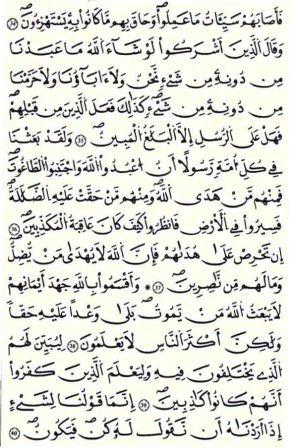 فَأَصَابَهُمْ سَيِّـَٔاتُ مَا عَمِلُوا۟ وَحَاقَ بِهِم مَّا كَانُوا۟ بِهِۦ يَسْتَهْزِءُونَ ٣٤
وَقَالَ ٱلَّذِينَ أَشْرَكُوا۟ لَوْ شَآءَ ٱللَّهُ مَا عَبَدْنَا
مِن دُونِهِۦ مِن شَىْءٍ نَّحْنُ وَلَآ ءَابَآؤُنَا وَلَا حَرَّمْنَا
مِن دُونِهِۦ مِن شَىْءٍ كَذَٰلِكَ فَعَلَ ٱلَّذِينَ مِن قَبْلِهِمْ
فَهَلْ عَلَى ٱلرُّسُلِ إِلَّا ٱلْبَلَٰغُ ٱلْمُبِينُ ٣٥ وَلَقَدْ بَعَثْنَا
فِى كُلِّ أُمَّةٍ رَّسُولًا أَنُ ٱعْبُدُوا۟ ٱللَّهَ وَٱجْتَنِبُوا۟ ٱلطَّٰغُوتَ
فَمِنْهُم مَّنْ هَدَى ٱللَّهُ وَمِنْهُم مَّنْ حَقَّتْ عَلَيْهِ ٱلضَّلَٰلَةُ
فَسِيرُوا۟ فِى ٱلْأَرْضِ فَٱنظُرُوا۟ كَيْفَ كَانَ عَٰقِبَةُ ٱلْمُكَذِّبِينَ ٣٦
إِن تَحْرِصْ عَلَىٰ هُدَىٰهُمْ فَإِنَّ ٱللَّهَ لَا يُهْدَىٰ مَن يُضِلُّ
وَمَا لَهُم مِّن نَّٰصِرِينَ ٣٧ ۞ وَأَقْسَمُوا۟ بِٱللَّهِ جَهْدَ أَيْمَٰنِهِمْ
لَا يَبْعَثُ ٱللَّهُ مَن يَمُوتُ بَلَىٰ وَعْدًا عَلَيْهِ حَقًّا
وَلَٰكِنَّ أَكْثَرَ ٱلنَّاسِ لَا يَعْلَمُونَ ٣٨ لِيُبَيِّنَ لَهُمُ
ٱلَّذِى يَخْتَلِفُونَ فِيهِ وَلِيَعْلَمَ ٱلَّذِينَ كَفَرُوٓا۟
أَنَّهُمْ كَانُوا۟ كَٰذِبِينَ ٣٩ إِنَّمَا قَوْلُنَا لِشَىْءٍ
إِذَآ أَرَدْنَٰهُ أَن نَّقُولَ لَهُۥ كُن فَيَكُونُ ٤٠